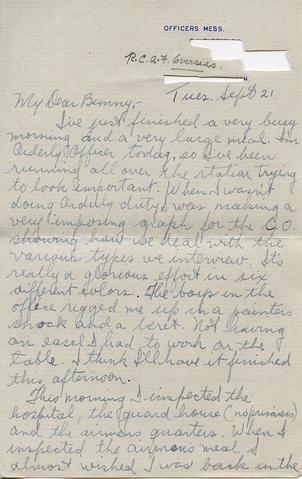 OFFICERS MESS.
R.C.A.F. Overseas.
Tues. Sept 21
My Dear Bunny,-
I've just finished a very busy
morning and a very large meal. I'm
Orderly Officer today, so I've been
running all over the station trying
to look important. When I wasn't
doing Orderly duty, I was making a
very imposing graph for the C.O.
showing how we deal with the
various types we interview. It's
really a glorious effort in six
different colors. The boys in the
office rigged me up in a painters
smock and a beret. Not having
an easel I had to work on the
table. I think I'll have it finished
this afternoon.
This morning I inspected the
hospital, the guard house (no prisoners)
and the airmens quarters. When I
inspected the airmen's meal I
almost wished I was back in the